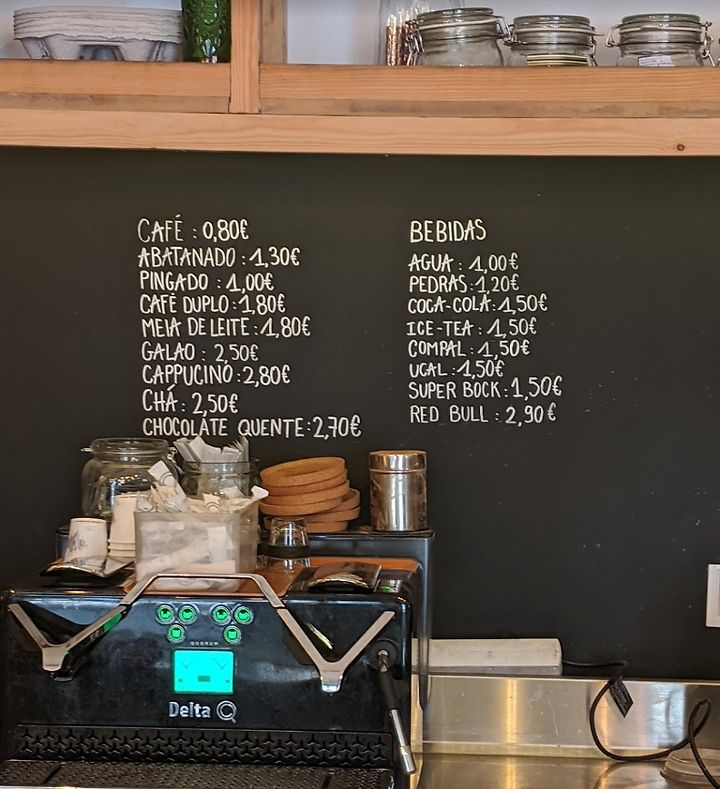 CAFÉ : 0,80€
ABATANADO : 1,30€
PINGADO : 1,00€
CAFÉ DUPLO : 1,80€
MEIA DE LEITE : 1,80€
GALAO : 2,50€
CAPPUCINO : 2,80€
CHÁ : 2,50€
CHOCOLATE QUENTE : 2,70€
BEBIDAS
AGUA : 1,00€
PEDRAS : 1,20€
COCA-COLA : 1,50€
ICE-TEA : 1,50€
COMPAL : 1,50€
UCAL : 1,50€
SUPER BOCK : 1,50€
RED BULL : 2,90€
QUORUM
Delta Q